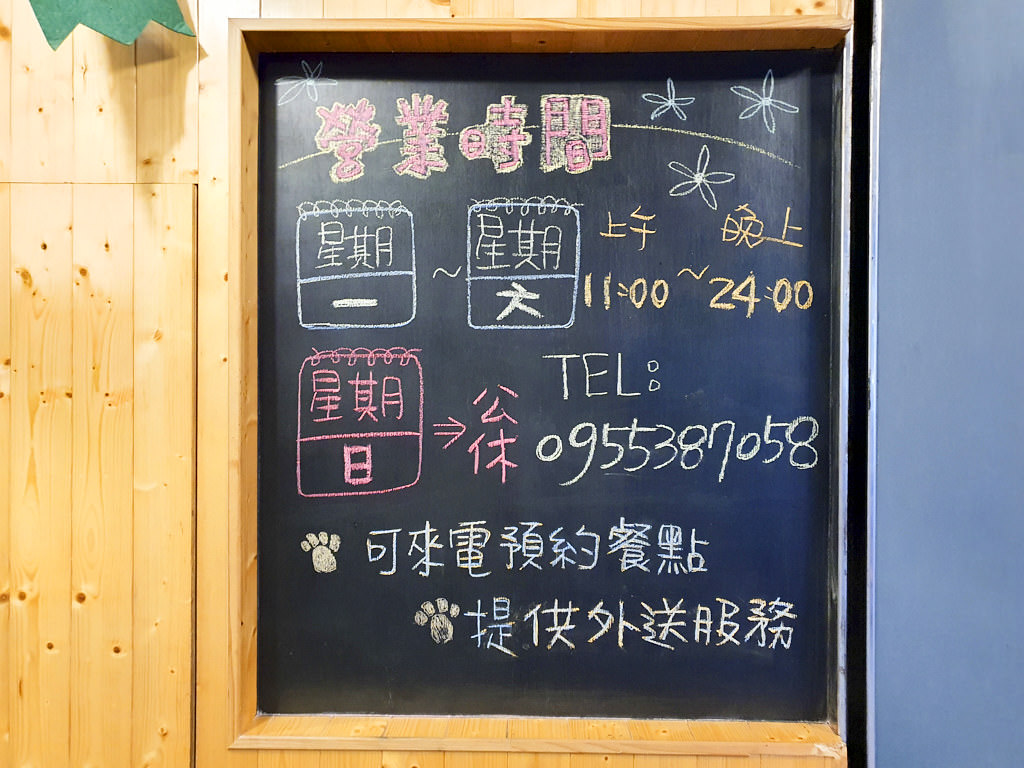 營業時間
星期一 ~ 星期六 上午 11:00 ~ 晚上 24:00
星期日 ⇒ 公休
TEL:
0955387058
可來電預約餐點
提供外送服務